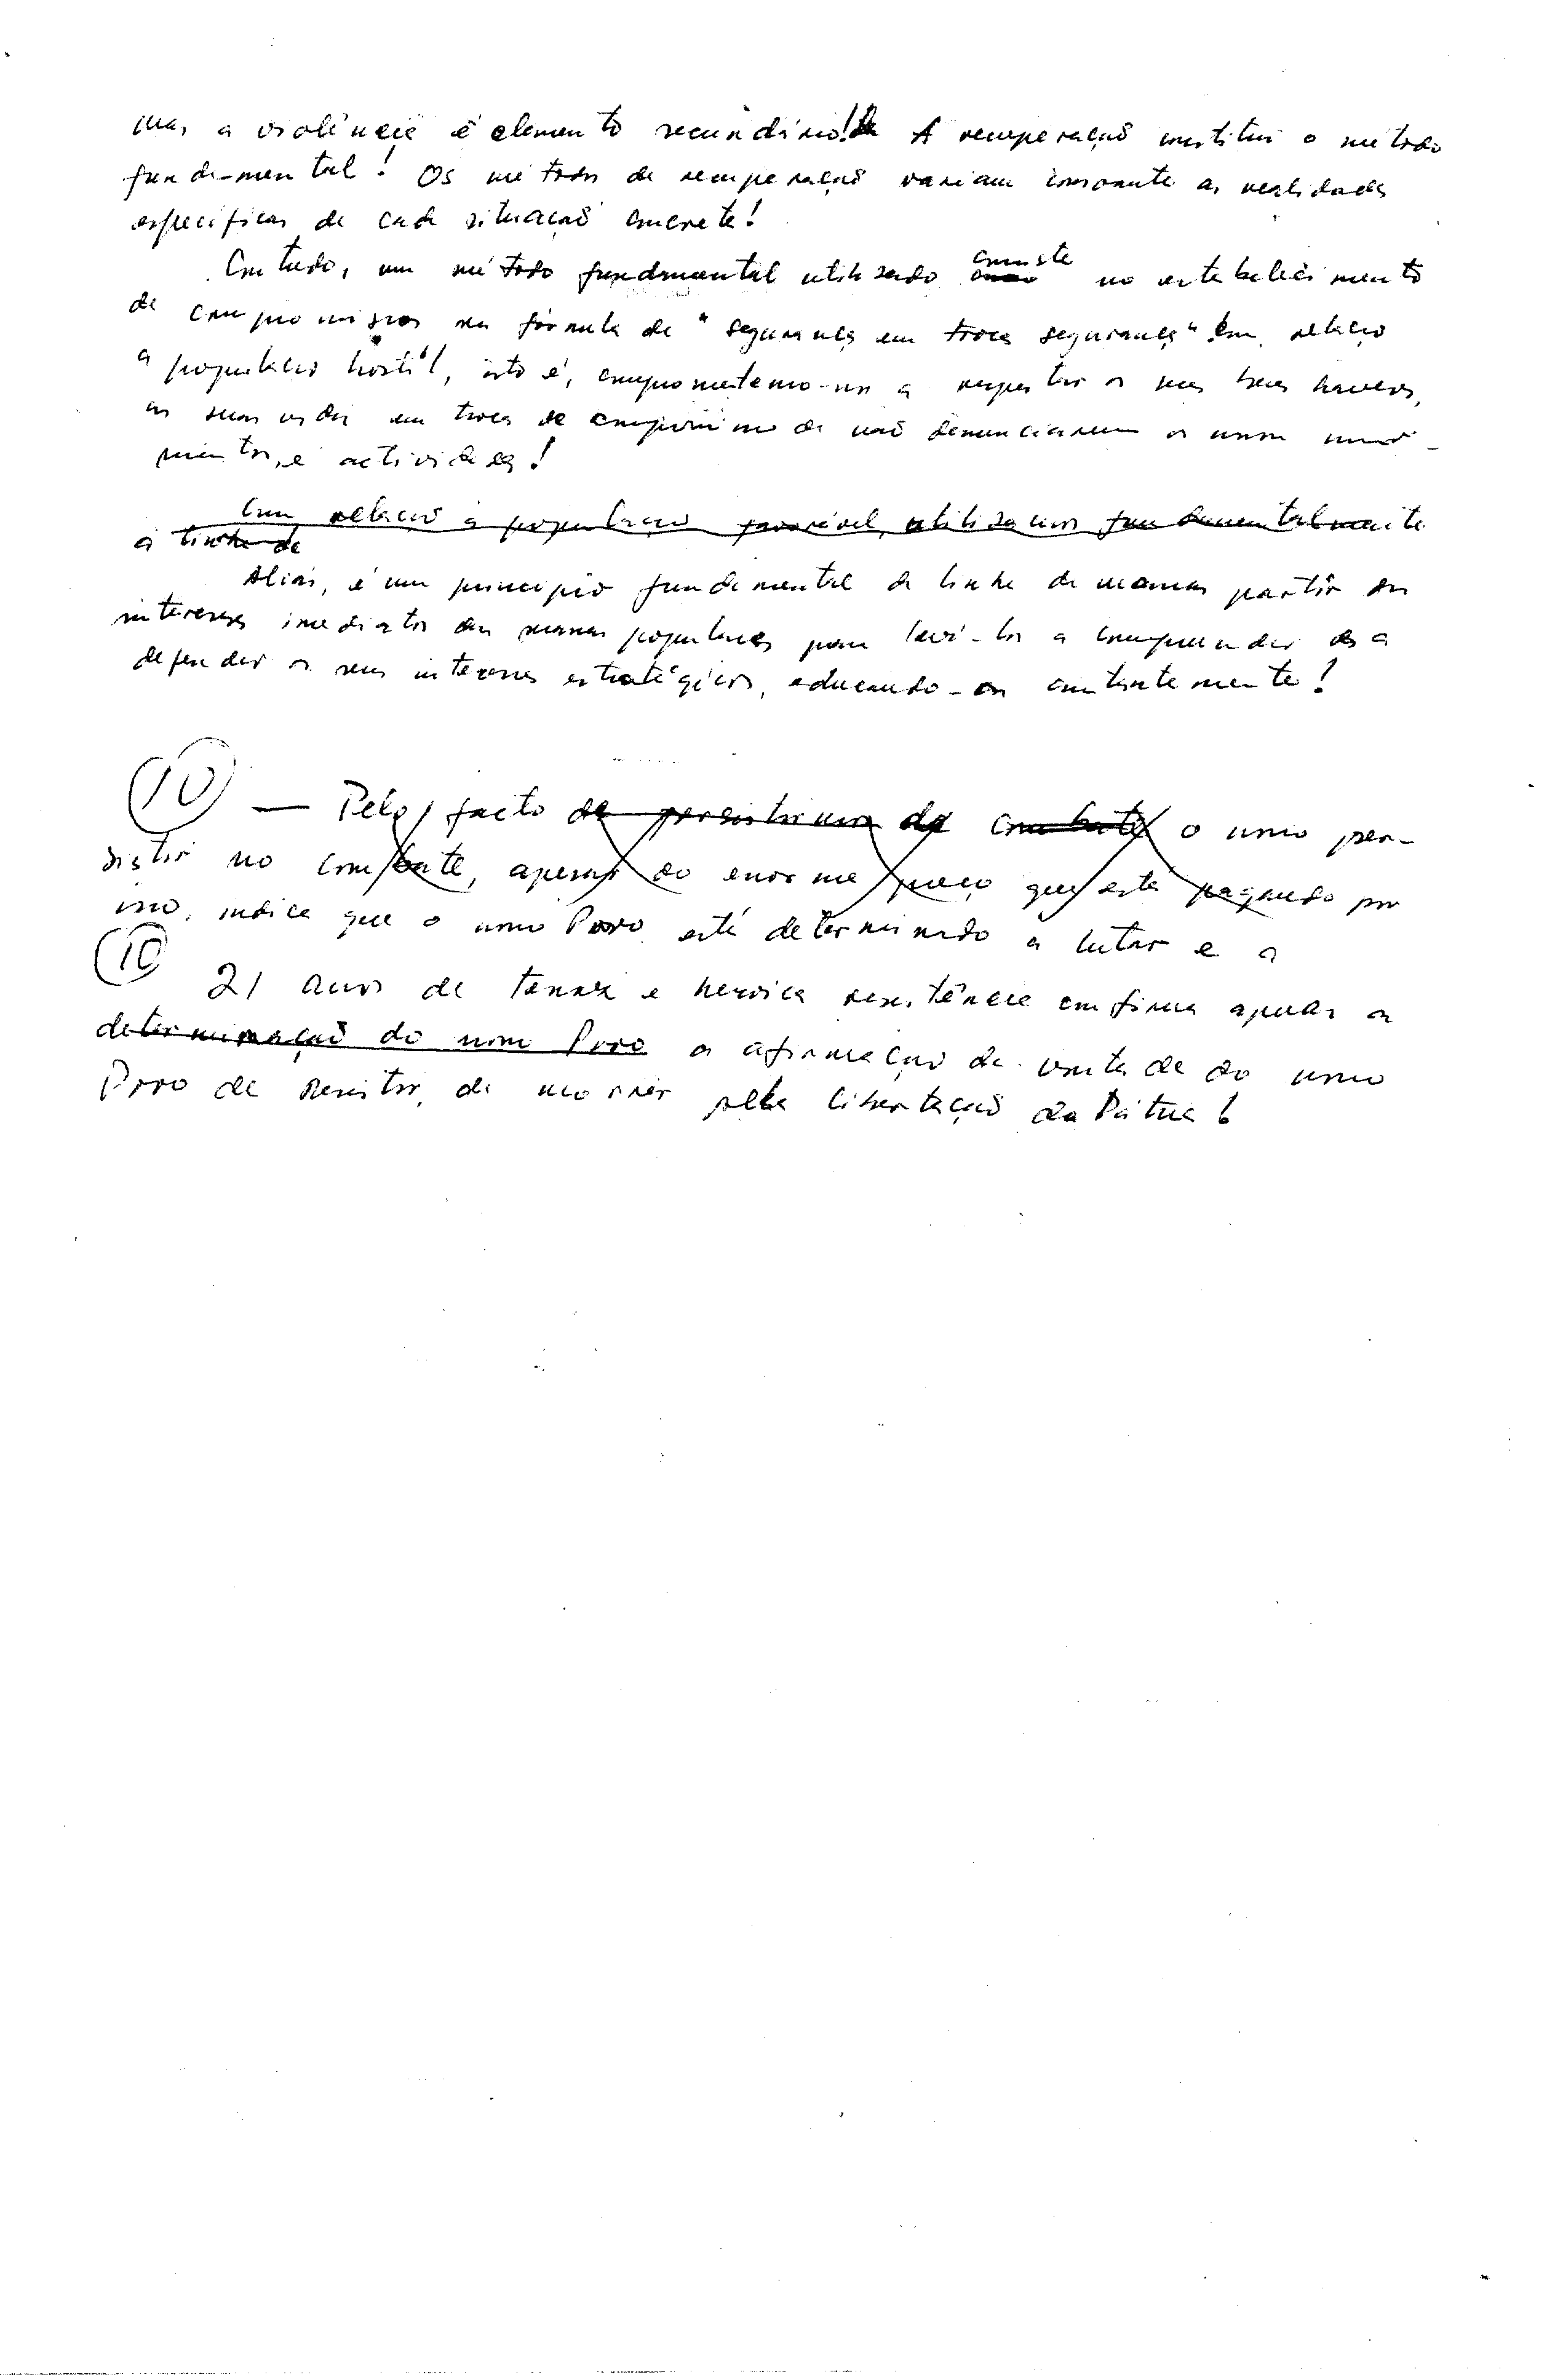 mas a violência é elemento secundário! A recuperação constitui o método
fundamental! Os métodos de recuperação variam consoante as realidades
especificas de cada situação concreta!
Contudo, um método fundamental utilizado consiste no estabelecimento
de compromissos na fórmula de "segurança em troca segurança" em relação
à população hostil, isto é, comprometemo-nos a respeitar os seus bens haveres,
as suas vidas em troca de compromisso de não denunciarem os nossos movi-
mentos, e actividades!
Com relação à população favorável, utilizamos fundamentalmente
a linha de
Aliás, é um principio fundamental da linha de massas partir dos
interesses imediatos das massas populares para levá-los a compreender e a
defender os seus interesses estratégicos, educando-os constantemente!
10 — Pelo facto de persistirmos de combate o nosso per-
sistir no combate, apesar do enorme preço que está pagando por
isso, indica que o nosso Povo está determinado a lutar e a
10 21 anos de tenaz e heroica resistência confirma apenas a
determinação do nosso Povo a afirmação da vontade do nosso
Povo de resistir, de morrer pela libertação da Pátria!